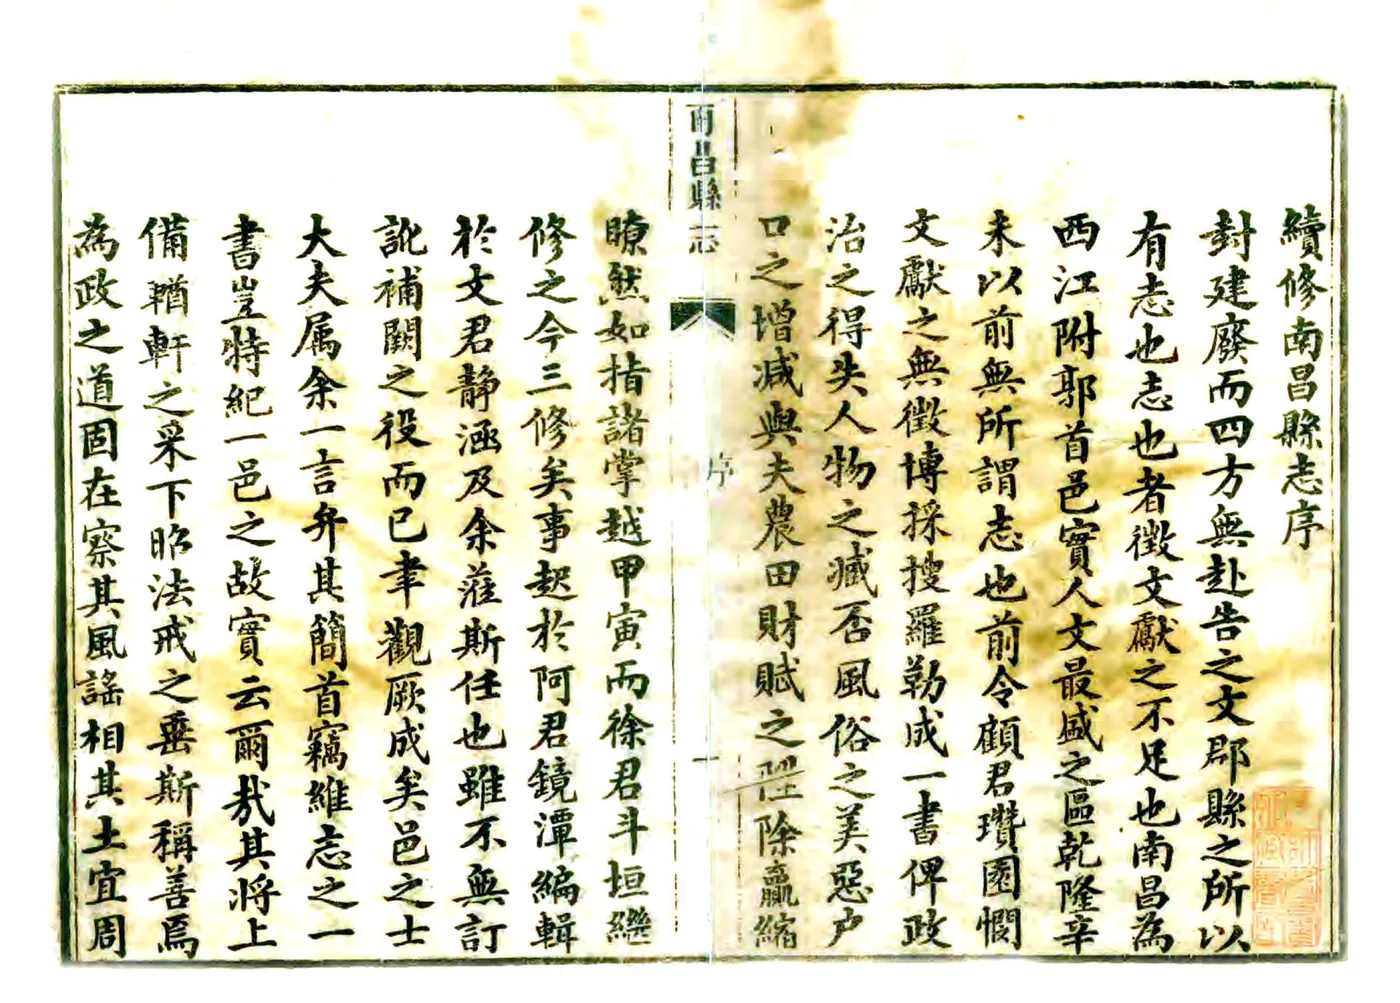 續修南昌縣志序
封建廢而四方無赴告之文郡縣之所以
有志也志也者徵文獻之不足也南昌為
西江附郭首邑實人文最盛之區乾隆辛
未以前無所謂志也前令顧君瓚園憫
文獻之無徵博採搜羅勒成一書俾政
治之得失人物之臧否風俗之美惡户
口之增减與夫農田財賦之陞除贏縮
南昌縣志
序
一
瞭然如指諸掌越甲寅而徐君斗垣繼
修之今三修矣事起於阿君鏡潭編輯
於文君靜涵及余蒞斯任也雖不無訂
訛補闕之役而已聿觀厥成矣邑之士
大夫属余一言弁其簡首竊維志之一
書豈特紀一邑之故實云爾㦲其将上
備輶軒之采下昭法戒之垂斯稱善焉
為政之道固在察其風謠相其土宜周